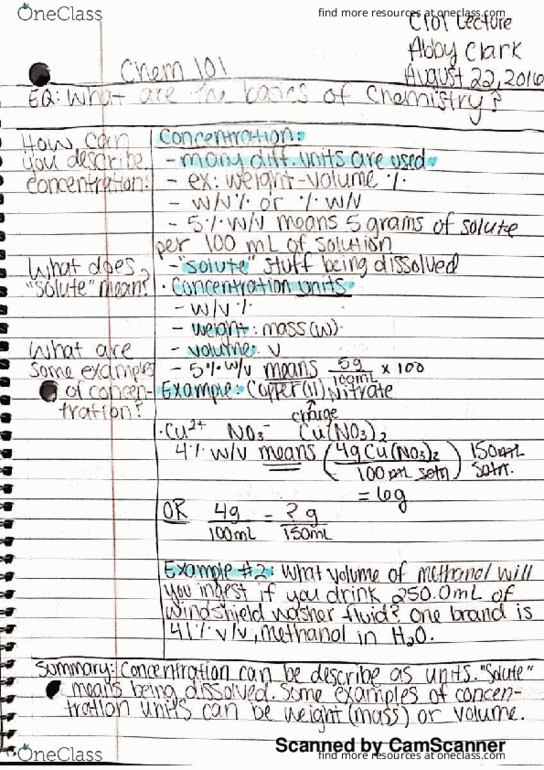 OneClass
find more resources at oneclass.com
C101 Lecture
Abby Clark
August 22, 2016
Chem 101
EQ: What are the basics of Chemistry?
How can you describe concentration?
Concentration:
- many diff. units are used
- ex: weight-volume %
- w/v % or % w/v
- 5% w/v means 5 grams of solute
per 100 mL of solution
What does "solute" mean?
- "solute" stuff being dissolved
· Concentration units
- w/v %
- weight: mass (w)
- volume: v
What are some examples of concentration?
- 5% w/v means 5g/100mL x 100
Example: Copper (II) Nitrate
charge
· Cu2+ NO3- Cu(NO3)2
4% w/v means (4g Cu(NO3)2 / 100 mL soln) 150mL soln.
= 6g
OR 4g/100mL = ? g/150mL
Example #2: What volume of methanol will
you ingest if you drink 250.0mL of
windshield washer fluid? One brand is
41% v/v, methanol in H2O.
Summary: Concentration can be describe as units. "Solute"
means being dissolved. Some examples of concen-
tration units can be weight (mass) or volume.
Scanned by CamScanner
OneClass
find more resources at oneclass.com